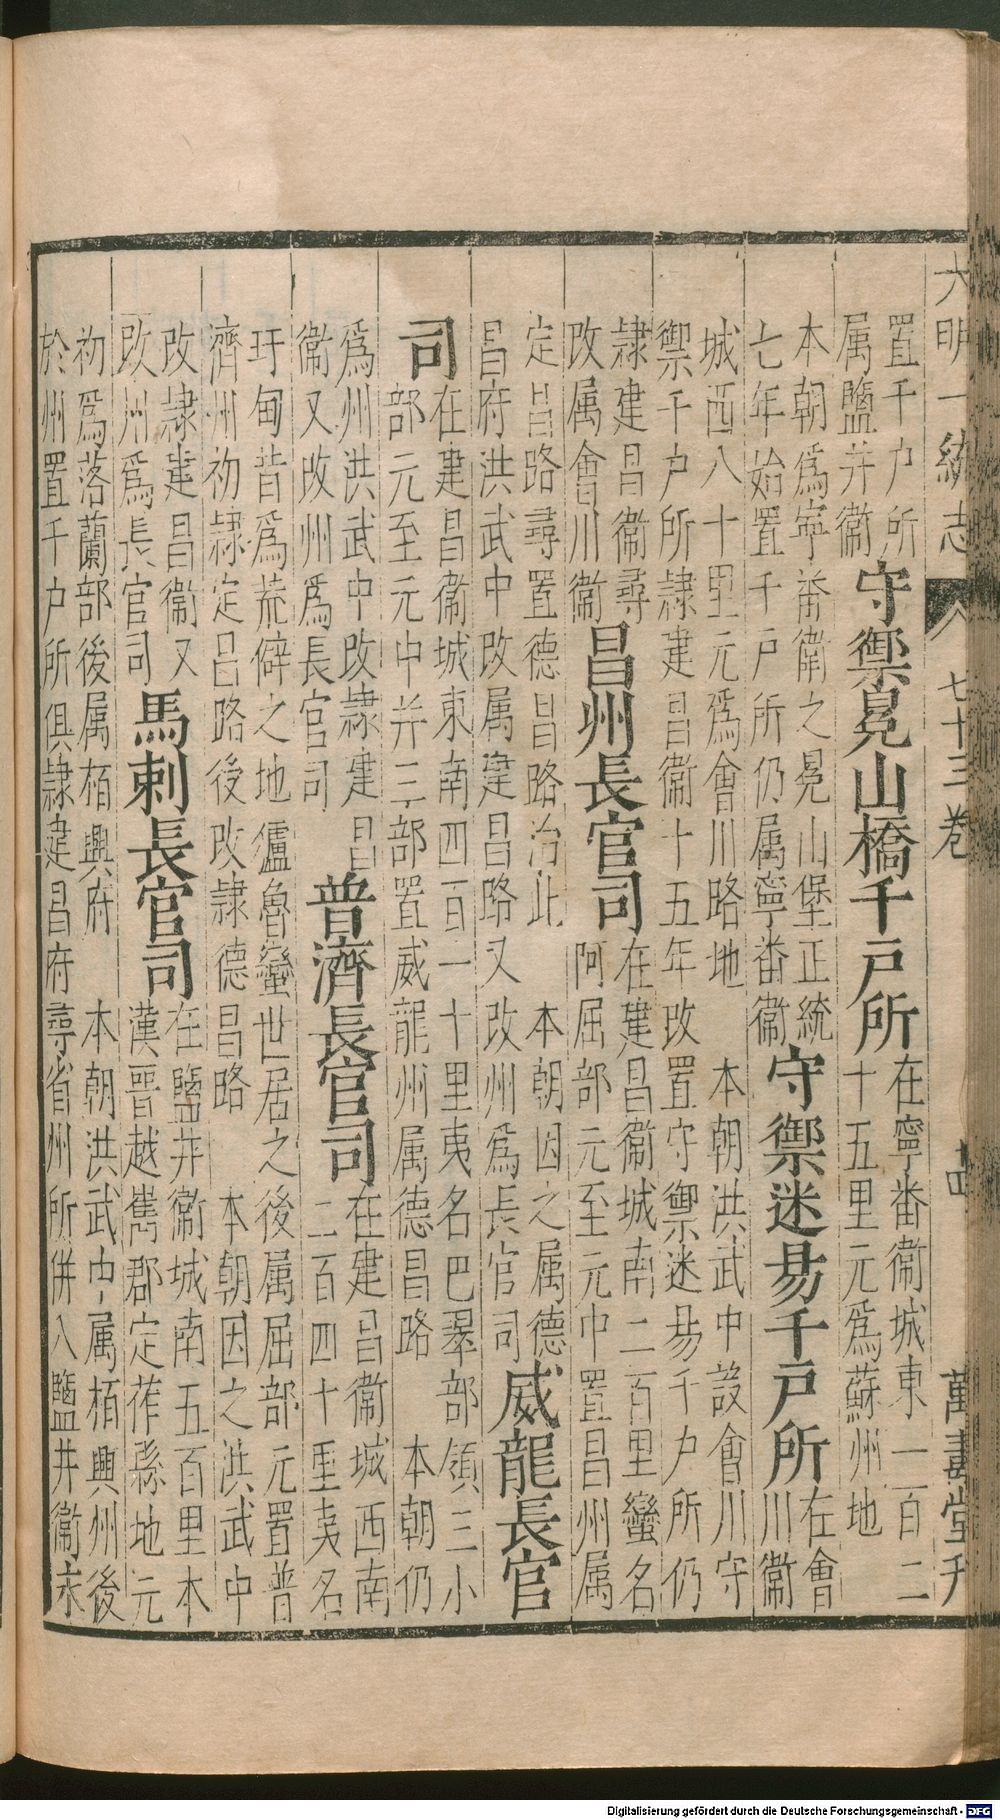 大明一統志 七十三卷 十四 萬壽堂刊
置千户所
属鹽井衞
守禦冕山橋千户所
在寧番衞城東一百二
十五里元為蘇州地
本朝為寧番衞之冕山堡正統
七年始置千户所仍属寧番衞
守禦迷昜千户所
在會
川衞
城西八十里元為會川路地 本朝洪武中設會川守
禦千户所隷建昌衞十五年改置守禦迷昜千户所仍
隷建昌衞尋
改属會川衞
昌州長官司
在建昌衞城南二百里蠻名
阿屈部元至元中置昌州属
定昌路尋置德昌路治此 本朝因之属德
昌府洪武中改属建昌路又改州為長官司
威龍長官
司
在建昌衞城東南四百一十里夷名巴翠部領三小
部元至元中并三部置威龍州属德昌路 本朝仍
為州洪武中改隷建昌
衞又改州為長官司
普濟長官司
在建昌衞城西南
二百四十里夷名
玗甸昔為荒僻之地玀魯蠻世居之後属屈部元置普
濟州初隷定昌路後改隷德昌路 本朝因之洪武中
改隷建昌衞又
改州為長官司
馬剌長官司
在鹽井衞城南五百里本
漢晉越嶲郡定莋縣地元
初為落蘭部後属栢興府 本朝洪武中属栢興州後
於州置千户所俱隷建昌府尋省州所併入鹽井衞永
Digitalisierung gefördert durch die Deutsche Forschungsgemeinschaft - DFG